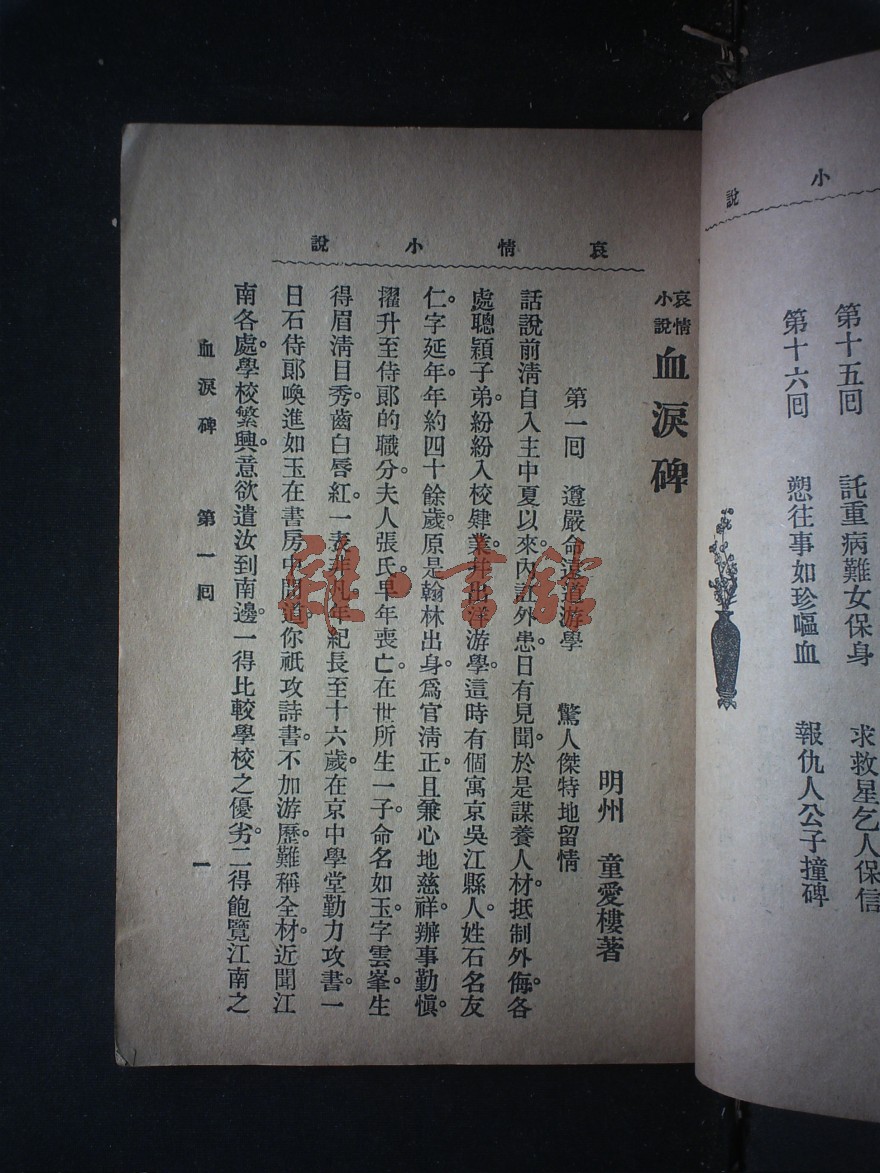 小說
第十五回　託重病難女保身　求救星乞人保信
第十六回　愬往事如珍嘔血　報仇人公子撞碑
哀情小說
哀情小說 血淚碑
明州　童愛樓著
第一回　遵嚴命遠道游學　驚人傑特地留情
話說前清自入主中夏以來。內訌外患。日有見聞。於是謀養人材。抵制外侮。各
處聰穎子弟。紛紛入校肄業。并出洋游學。這時有個寓京吳江縣人。姓石名友
仁。字延年。年約四十餘歲。原是翰林出身。爲官清正。且兼心地慈祥。辦事勤愼。
擢升至侍郞的職分。夫人張氏。早年喪亡。在世所生一子。命名如玉。字雲峯。生
得眉清目秀。齒白唇紅。一表非凡。年紀長至十六歲。在京中學堂勤力攻書。一
日石侍郞喚進如玉在書房中問道。你祇攻詩書。不加游歷。難稱全材。近聞江
南各處。學校繁興。意欲遣汝到南邊。一得比較學校之優劣。二得飽覽江南之
血淚碑　第一回　一
雜·書館